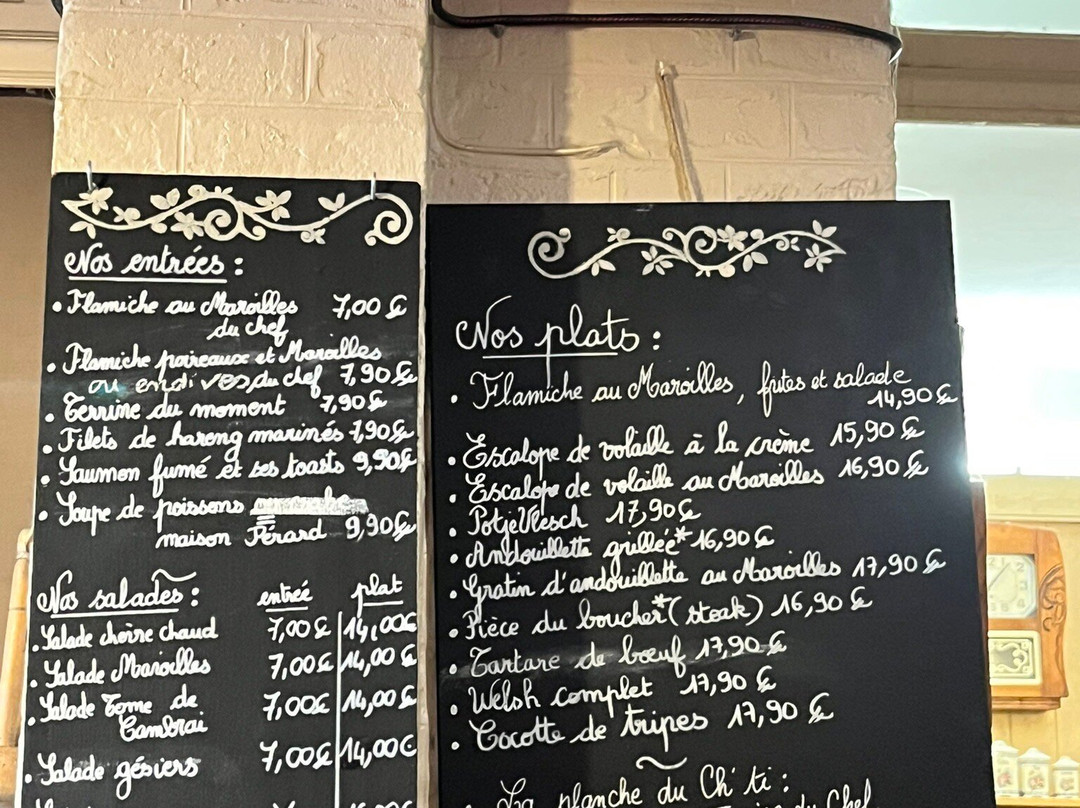 Nos entrées :
• Flamiche au Maroilles 7,00€
du chef
• Flamiche poireaux et Maroilles
ou endives du chef 7,90€
• Terrine du moment 7,90€
• Filets de hareng marinés 7,90€
• Saumon fumé et ses toasts 9,90€
• Soupe de poissons
maison Pérard 9,90€
Nos salades : entrée plat
• Salade chèvre chaud 7,00€ 14,00€
• Salade Maroilles 7,00€ 14,00€
• Salade Tome de 7,00€ 14,00€
Cambrai
• Salade gésiers 7,00€ 14,00€
Nos plats :
• Flamiche au Maroilles, frites et salade
14,90€
• Escalope de volaille à la crème 15,90€
• Escalope de volaille au Maroilles 16,90€
• Potje Vlesch 17,90€
• Andouillette grillée* 16,90€
• Gratin d'andouillette au Maroilles 17,90€
• Pièce du boucher* (steak) 16,90€
• Tartare de bœuf 17,90€
• Welsh complet 17,90€
• Cocotte de tripes 17,90€
La planche du Ch'ti :
du Chef